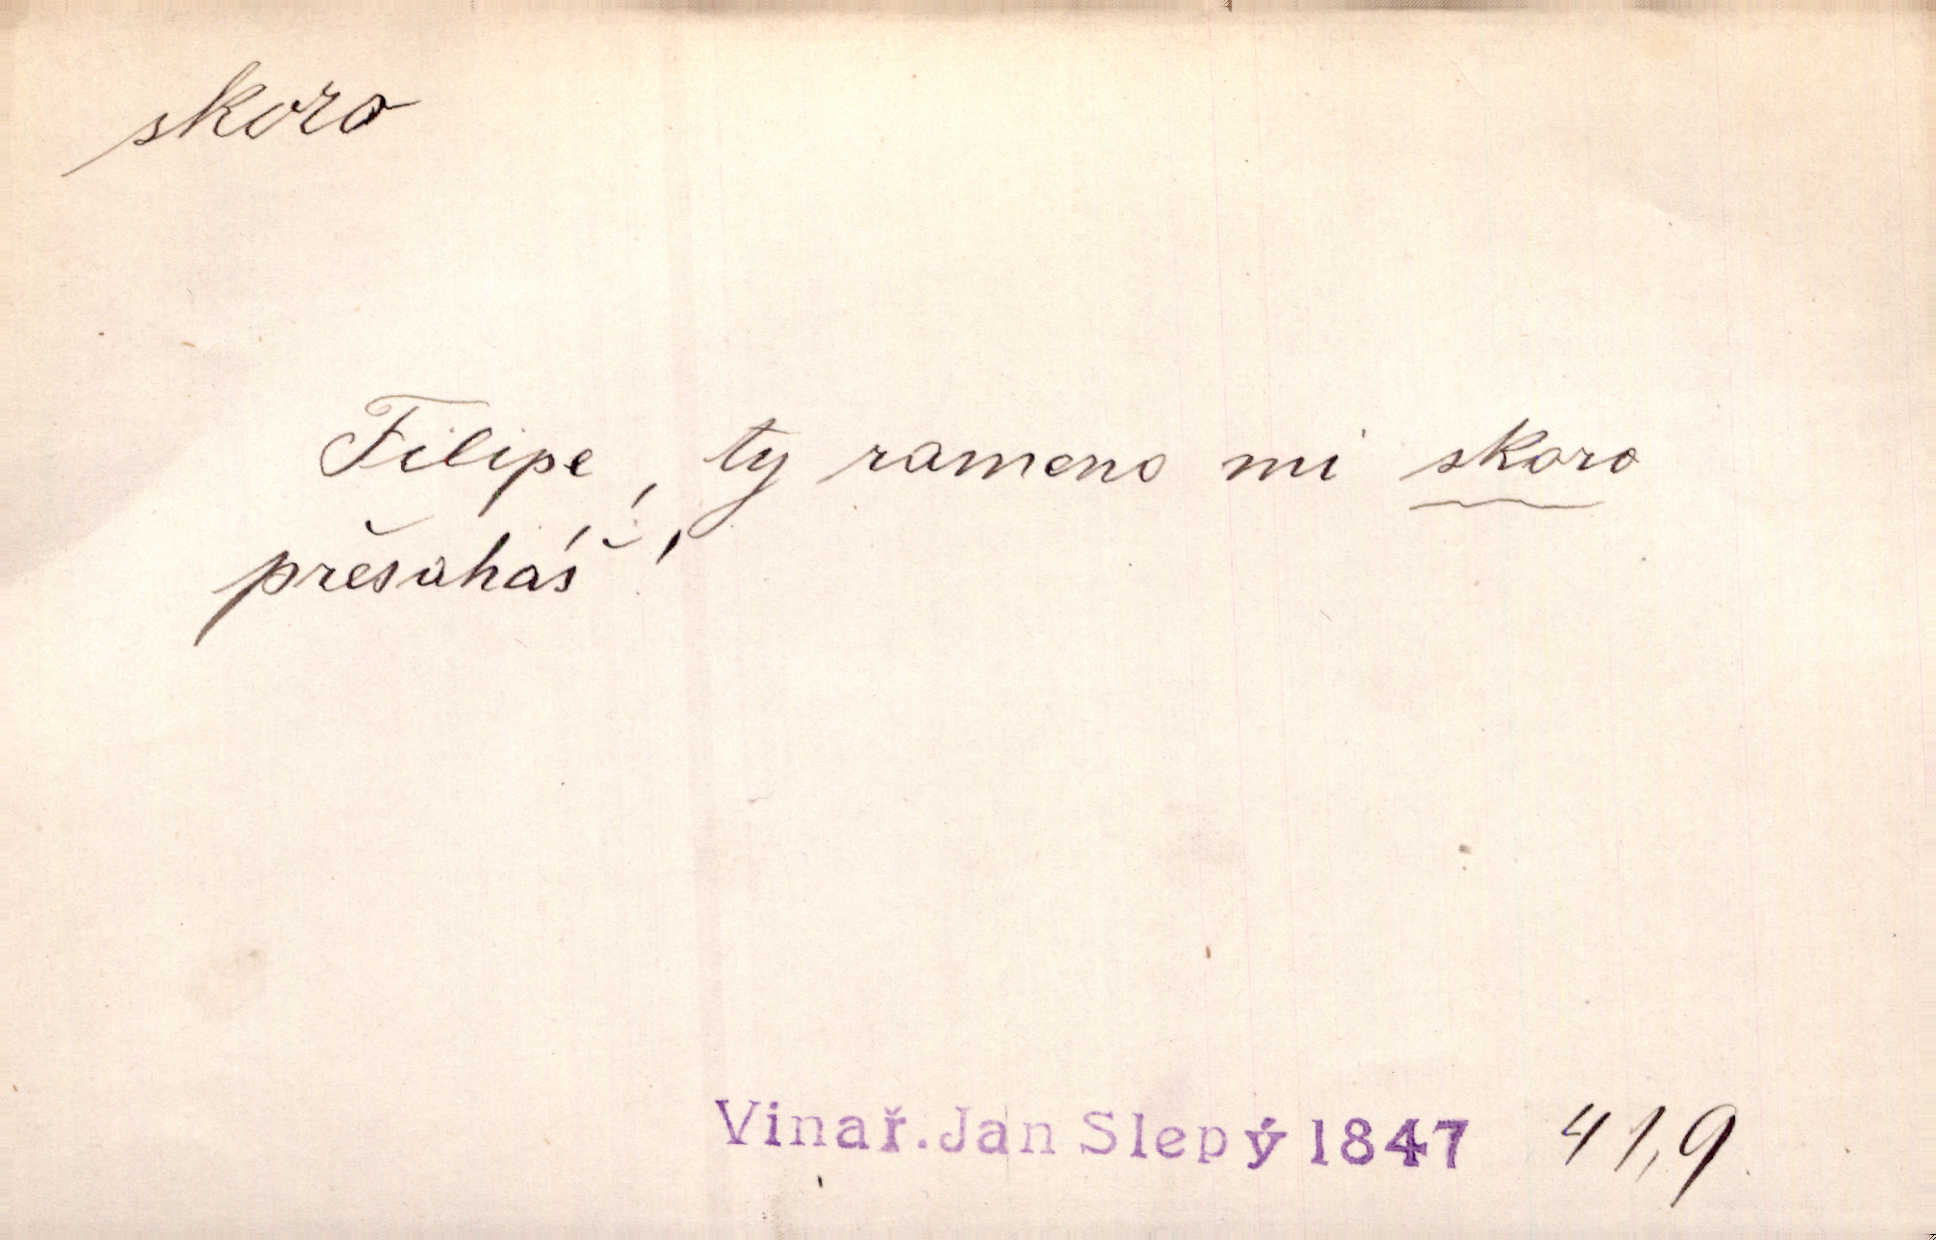 skoro
Filipe, ty rameno mi skoro
přesaháš,
Vinař. Jan Slepý 1847 41,9